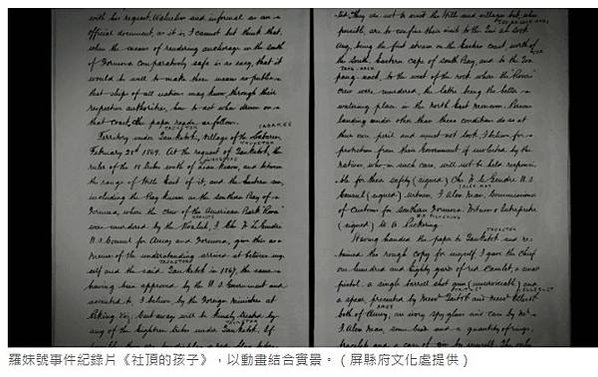 with his request. Valueless and informal as an
official document, as it is, I cannot but think that,
when the means of rendering anchorage in the south
of Formosa comparatively safe is so easy, that it
would be well to make these means so public
that ships of all nations may know, through their
respective authorities, how to act when driven on
that coast. The paper reads as follows.
TAUKETOK SABAREE
Territory under Tauketok, Village of the Sabaree
TAUKETOK
February 28th 1869. At the request of Tauketok, the
ruler of the 18 tribes south of and between
the range of Hills East of it, and the Eastern sea,
including the Bay known as the southern Bay of
Formosa, where the crew of the American Bark "Rover"
KOALUTS
were murdered by the Koaluts, I Chs W. Le Gendre
U.S. Consul for Amoy and Formosa, give this as a
TAUKETOK
Memo of the understanding arrived at between my
self and the said Tauketok in 1867, the same
having been approved by the U.S. Government and
assented to, I believe by the Foreign Ministers at
Peking viz; Cast away will be kindly treated by
TAUKETOK
any of the eighteen tribes under Tauketok. If
they are to display a red flag
sed. They are not to visit the Hills and villages but, when
possible, are to confine their visit to the
being the first stream on the Eastern coast north of
the South, Eastern cape of South Bay, and to the
to the west of the rock where the Rover's
crew were murdered, the latter being the better
watering place in the North East monsoon. Persons
landing under other than these conditions do so at
their own peril and must not look, I believe for
protection from their Government if molested by the
natives, who in such case, will not be held responsi-
ble for their safety (signed) Chs W. Le Gendre U.S.
ALEX MAN
Consul (signed) witness, I Alex Man, Commissioner
of Customs for southern Formosa. Witness & Interpreter
W.A. PICKERING
(signed) W. A. Pickering
TAUKETOK
Having handed the paper to Tauketok and re-
tained the rough copy for myself I gave the Chief
one hundred and eighty yards of red Camlet, a small
pistol, a single barrel shot gun (unserviceable) and
a spear presented by Messrs and Messrs
both of Amoy, an ivory spy glass and case by me.
I Alex Man, some beads and a quantity of rings,
bracelets and a case of gin by myself. The only
羅妹號事件紀錄片《社頂的孩子》，以動畫結合實景。（屏縣府文化處提供）